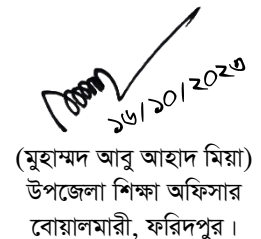 ১৬/১০/২০২৩
(মুহাম্মদ আবু আহাদ মিয়া)
উপজেলা শিক্ষা অফিসার
বোয়ালমারী, ফরিদপুর।